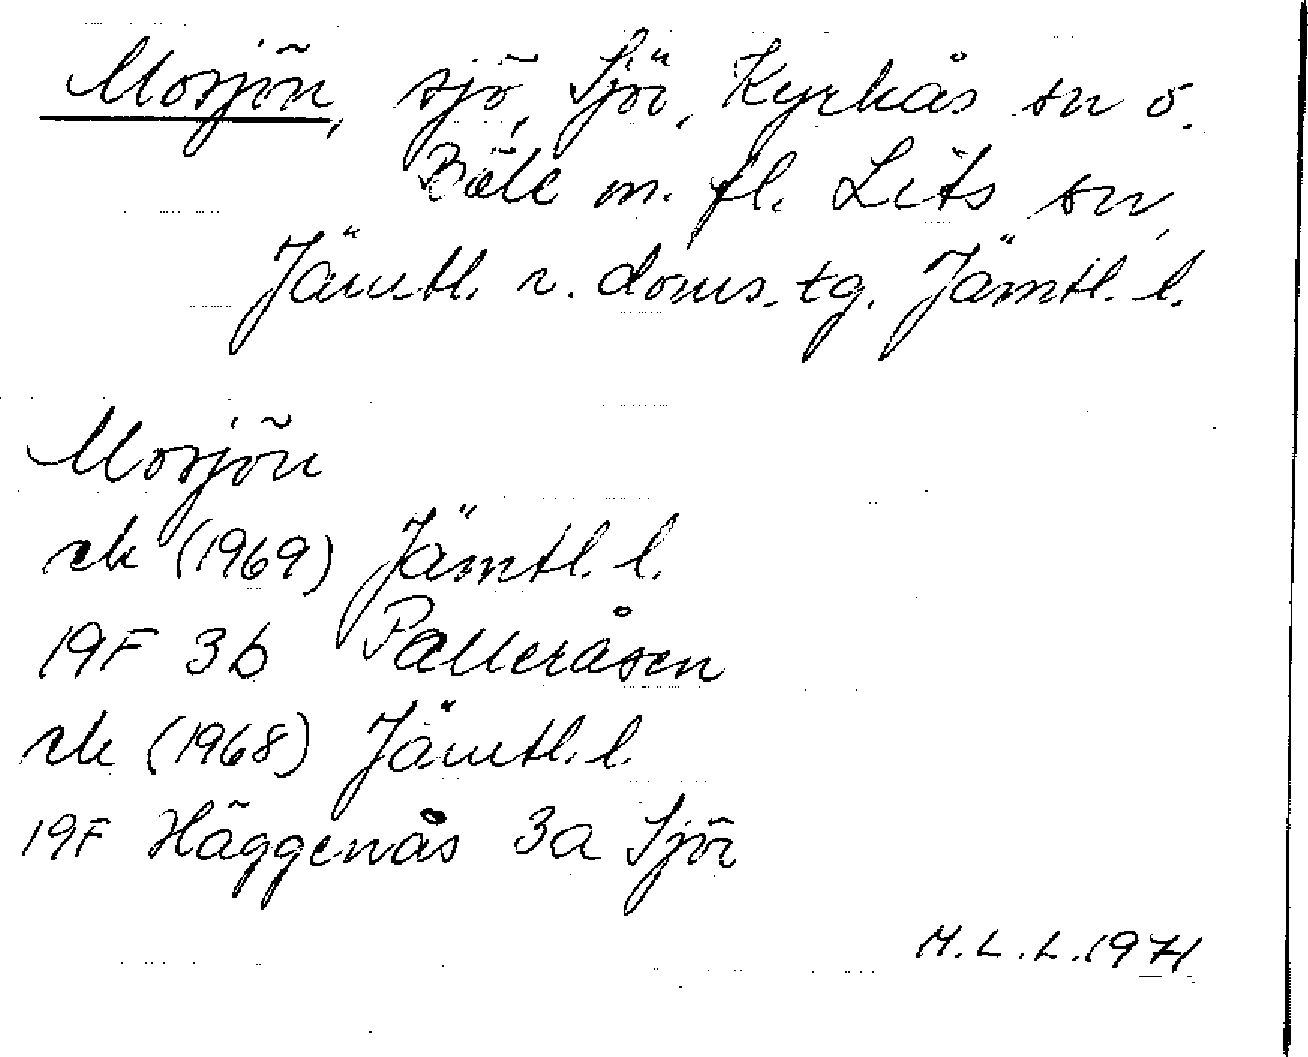 Mosjön, sjö, Sjör, Kyrkås sn o.
Böle m. fl. Lits sn,
Jämtl. n. doms. tg. Jämtl. l.
Mosjön
rek (1969) Jämtl. l.
19F 3b Palleråsen
rek (1968) Jämtl. l.
19F Häggenås 3a Sjör
M.L.L. 1971